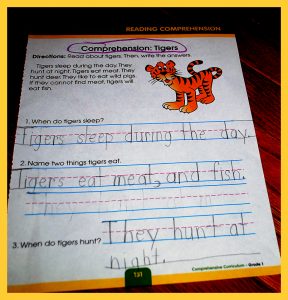 READING COMPREHENSION
Comprehension: Tigers
Directions: Read about tigers. Then, write the answers.
Tigers sleep during the day. They
hunt at night. Tigers eat meat. They
hunt deer. They like to eat wild pigs.
If they cannot find meat, tigers will
eat fish.
1. When do tigers sleep?
Tigers sleep during the day.
2. Name two things tigers eat.
Tigers eat meat, and fish.
They
3. When do tigers hunt?
They hunt at
night.
131
Comprehensive Curriculum - Grade 1